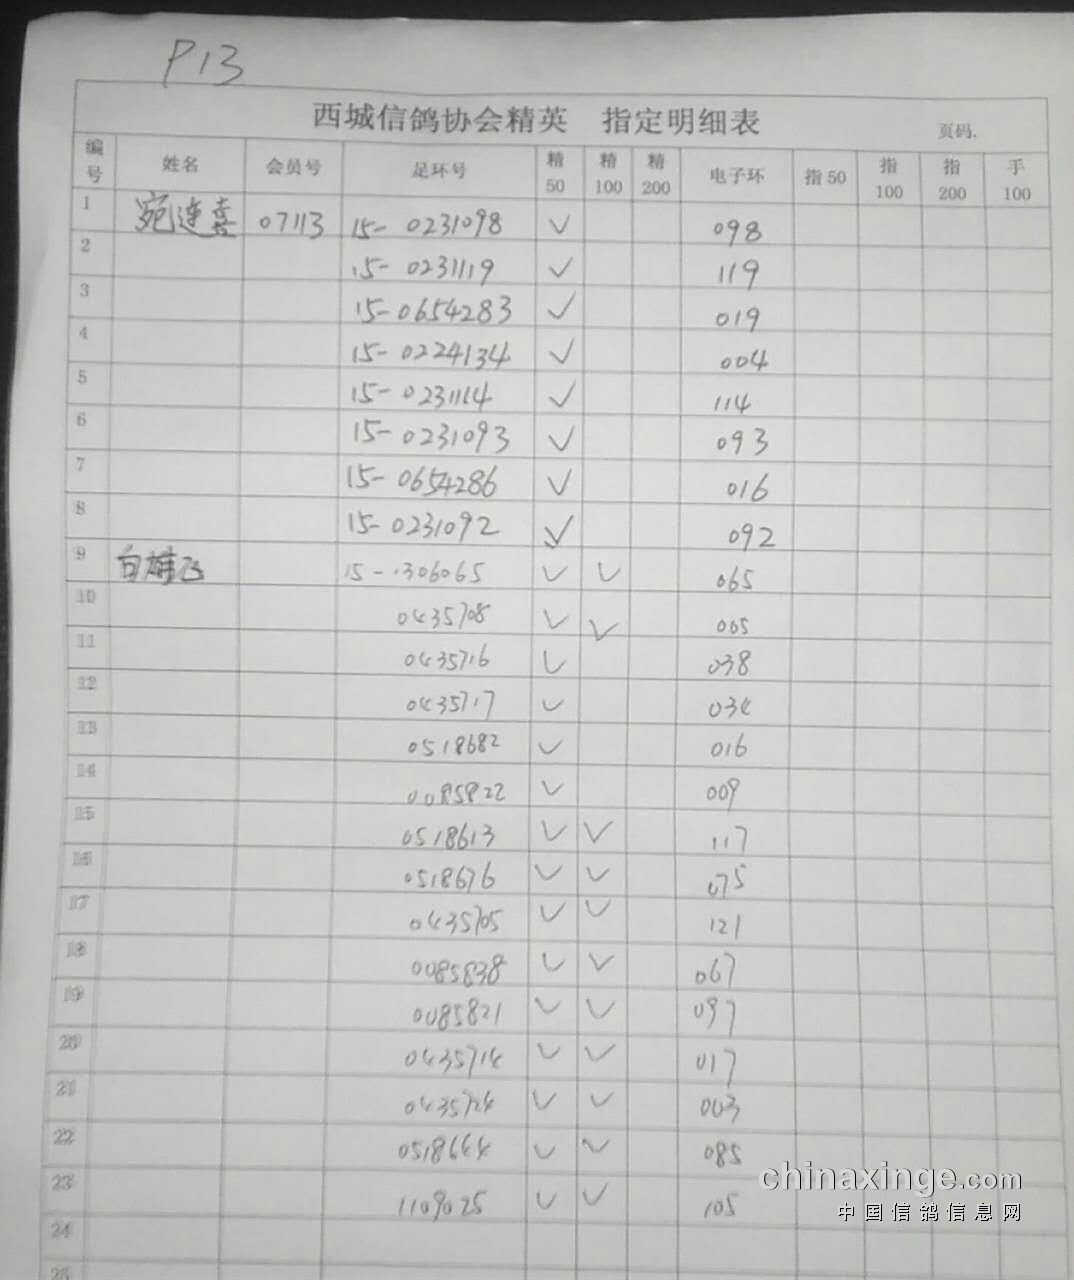 P13
西城信鸽协会精英 指定明细表 页码.
编号 姓名 会员号 足环号 精50 精100 精200 电子环 指50 指100 指200 手100
1 宛连喜 07113 15-0231098 ✓ 098
2 15-0231119 ✓ 119
3 15-0654283 ✓ 019
4 15-0224134 ✓ 004
5 15-0231114 ✓ 114
6 15-0231093 ✓ 093
7 15-0654286 ✓ 016
8 15-0231092 ✓ 092
9 白雄飞 15-·306065 ✓ ✓ 065
10 0435708 ✓ ✓ 005
11 0435716 ✓ 038
12 0435717 ✓ 034
13 0518682 ✓ 016
14 0085822 ✓ 009
15 0518613 ✓ ✓ 117
16 0518676 ✓ ✓ 075
17 0435705 ✓ ✓ 121
18 0085838 ✓ ✓ 067
19 0085821 ✓ ✓ 097
20 0435714 ✓ ✓ 017
21 0435724 ✓ ✓ 003
22 0518644 ✓ ✓ 085
23 1109025 ✓ ✓ 105
24
25
chinaxinge.com
中国信鸽信息网